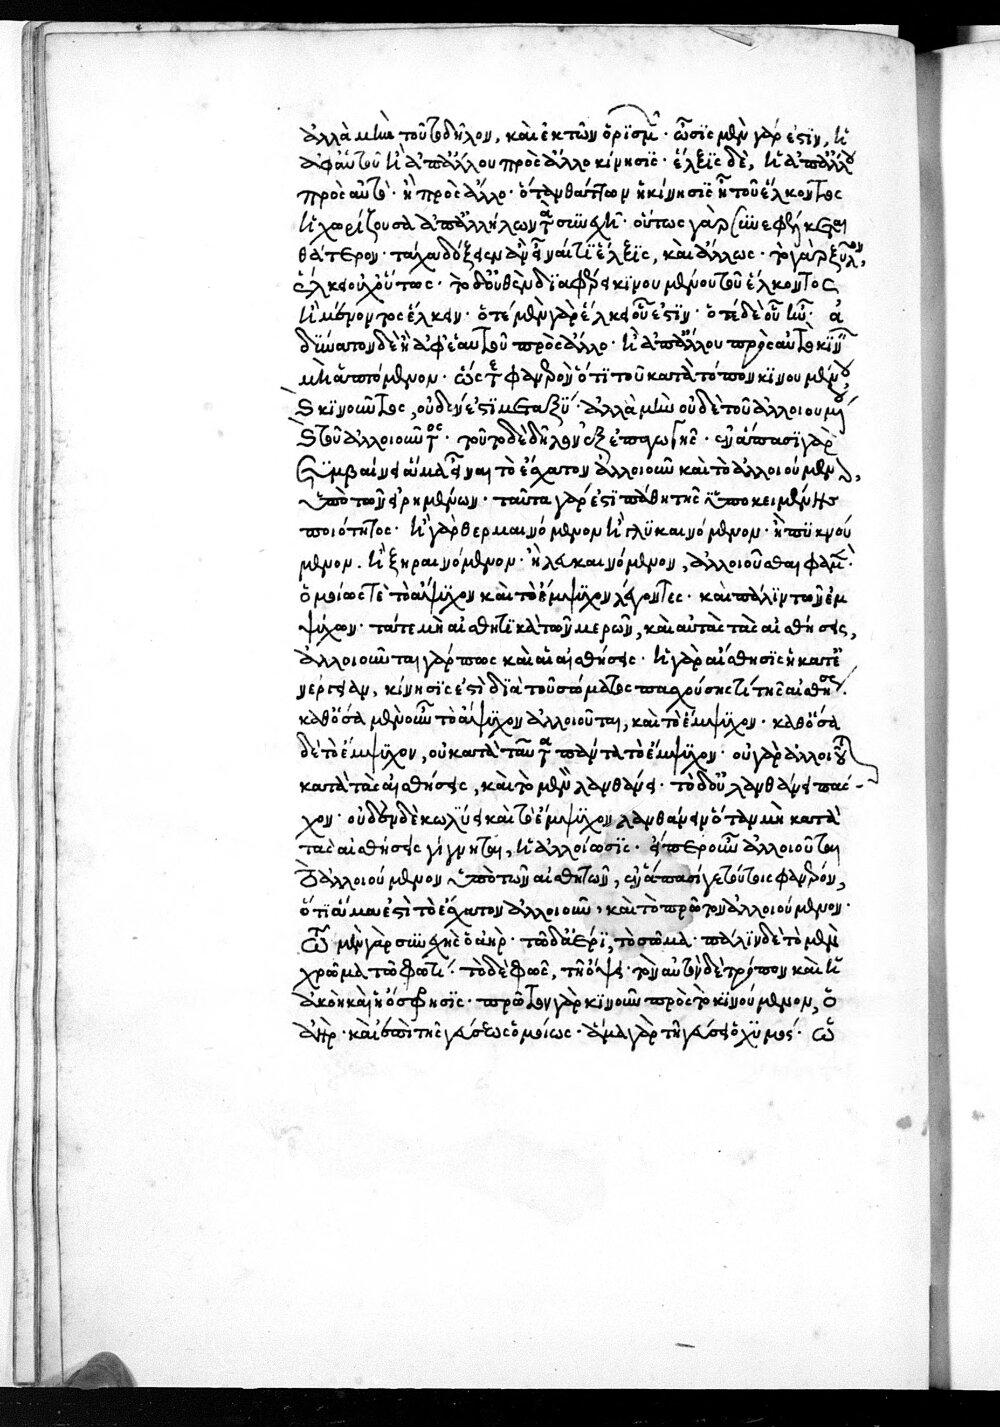 ἀλλὰ μὴν τοῦτο δῆλον, καὶ ἐκ τῶν ὁρισμῶν· ὦσις μὲν γάρ ἐστιν, ἡ
ἀφ' αὑτοῦ ἢ ἀπ' ἄλλου πρὸς ἄλλο κίνησις· ἕλξις δὲ, ἡ ἀπ' ἄλλου
πρὸς αὑτὸ· ἢ πρὸς ἄλλο· ὅταν θάττων ἡ κίνησις ᾖ τοῦ ἕλκοντος
ἡ χωρίζουσα ἀπ' ἀλλήλων τὰ συνεχῆ· οὕτως γὰρ συνεφέλκεται
θάτερον· τάχα δόξειεν ἂν εἶναί τις ἕλξις, καὶ ἄλλως· τὸ γὰρ ξύλον,
ἕλκει οὐχ οὕτως· τὸ δ' οὐθὲν διαφέρει κινουμένου τοῦ ἕλκοντος
ἢ μένοντος ἕλκειν· ὁτὲ μὲν γὰρ ἕλκει οὗ ἐστιν· ὁτὲ δὲ οὗ ἦν· ἀ
δύνατον δὲ ἢ ἀφ' ἑαυτοῦ πρὸς ἄλλο· ἢ ἀπ' ἄλλου πρὸς αὑτὸ κινεῖν
μὴ ἁπτόμενον· ὥστε φανερὸν ὅτι τοῦ κατὰ τόπον κινουμένου,
καὶ κινοῦντος, οὐδέν ἐστι μεταξύ· ἀλλὰ μὴν οὐδὲ τοῦ ἀλλοιουμένου
καὶ τοῦ ἀλλοιοῦντος· τοῦτο δὲ δῆλον ἐξ ἐπαγωγῆς· ἐν ἅπασι γὰρ
συμβαίνει ἅμα εἶναι τὸ ἔσχατον ἀλλοιοῦν καὶ τὸ ἀλλοιούμενον,
ὑπὸ τῶν εἰρημένων· ταῦτα γάρ ἐστι πάθη τῆς ὑποκειμένης
ποιότητος· ἢ γὰρ θερμαινόμενον ἢ γλυκαινόμενον· ἢ πυκνού
μενον· ἢ ξηραινόμενον· ἢ λευκαινόμενον, ἀλλοιοῦσθαι φαμέν·
ὁμοίως τε τὸ ἄψυχον καὶ τὸ ἔμψυχον λέγοντες· καὶ πάλιν τῶν ἐμ
ψύχων· τά τε μὴ αἰσθητικὰ τῶν μερῶν, καὶ αὐτὰς τὰς αἰσθήσεις,
ἀλλοιοῦνται γάρ πως καὶ αἱ αἰσθήσεις· ἡ γὰρ αἴσθησις ἡ κατ' ἐ
νέργειαν, κίνησίς ἐστι διὰ τοῦ σώματος πασχούσης τι τῆς αἰσθήσεως·
καθ' ὅσα μὲν οὖν τὸ ἄψυχον ἀλλοιοῦται, καὶ τὸ ἔμψυχον· καθ' ὅσα
δὲ τὸ ἔμψυχον, οὐ κατὰ ταῦτα πάντα τὸ ἄψυχον· οὐ γὰρ ἀλλοιοῦται
κατὰ τὰς αἰσθήσεις, καὶ τὸ μὲν λανθάνει· τὸ δ' οὐ λανθάνει πάσ-
χον· οὐδὲν δὲ κωλύει καὶ τὸ ἔμψυχον λανθάνειν ὅταν μὴ κατὰ
τὰς αἰσθήσεις γίγνηται, ἡ ἀλλοίωσις· εἴπερ οὖν ἀλλοιοῦται
τὸ ἀλλοιούμενον ὑπὸ τῶν αἰσθητῶν, ἐν ἅπασί γε τούτοις φανερόν,
ὅτι ἅμα ἐστὶ τὸ ἔσχατον ἀλλοιοῦν, καὶ τὸ πρῶτον ἀλλοιούμενον·
τῷ μὲν γὰρ συνεχὴς ὁ ἀὴρ· τῷ δ' ἀέρι, τὸ σῶμα· πάλιν δὲ τὸ μὲν
χρῶμα τῷ φωτί· τὸ δὲ φῶς, τῇ ὄψει· τὸν αὐτὸν δὲ τρόπον καὶ ἡ
ἀκοὴ καὶ ἡ ὄσφρησις· πρῶτον γὰρ κινοῦν πρὸς τὸ κινούμενον, ὁ
ἀήρ· καὶ ἐπὶ τῆς γεύσεως ὁμοίως· ἅμα γὰρ τῇ γεύσει ὁ χυμός· ὡ